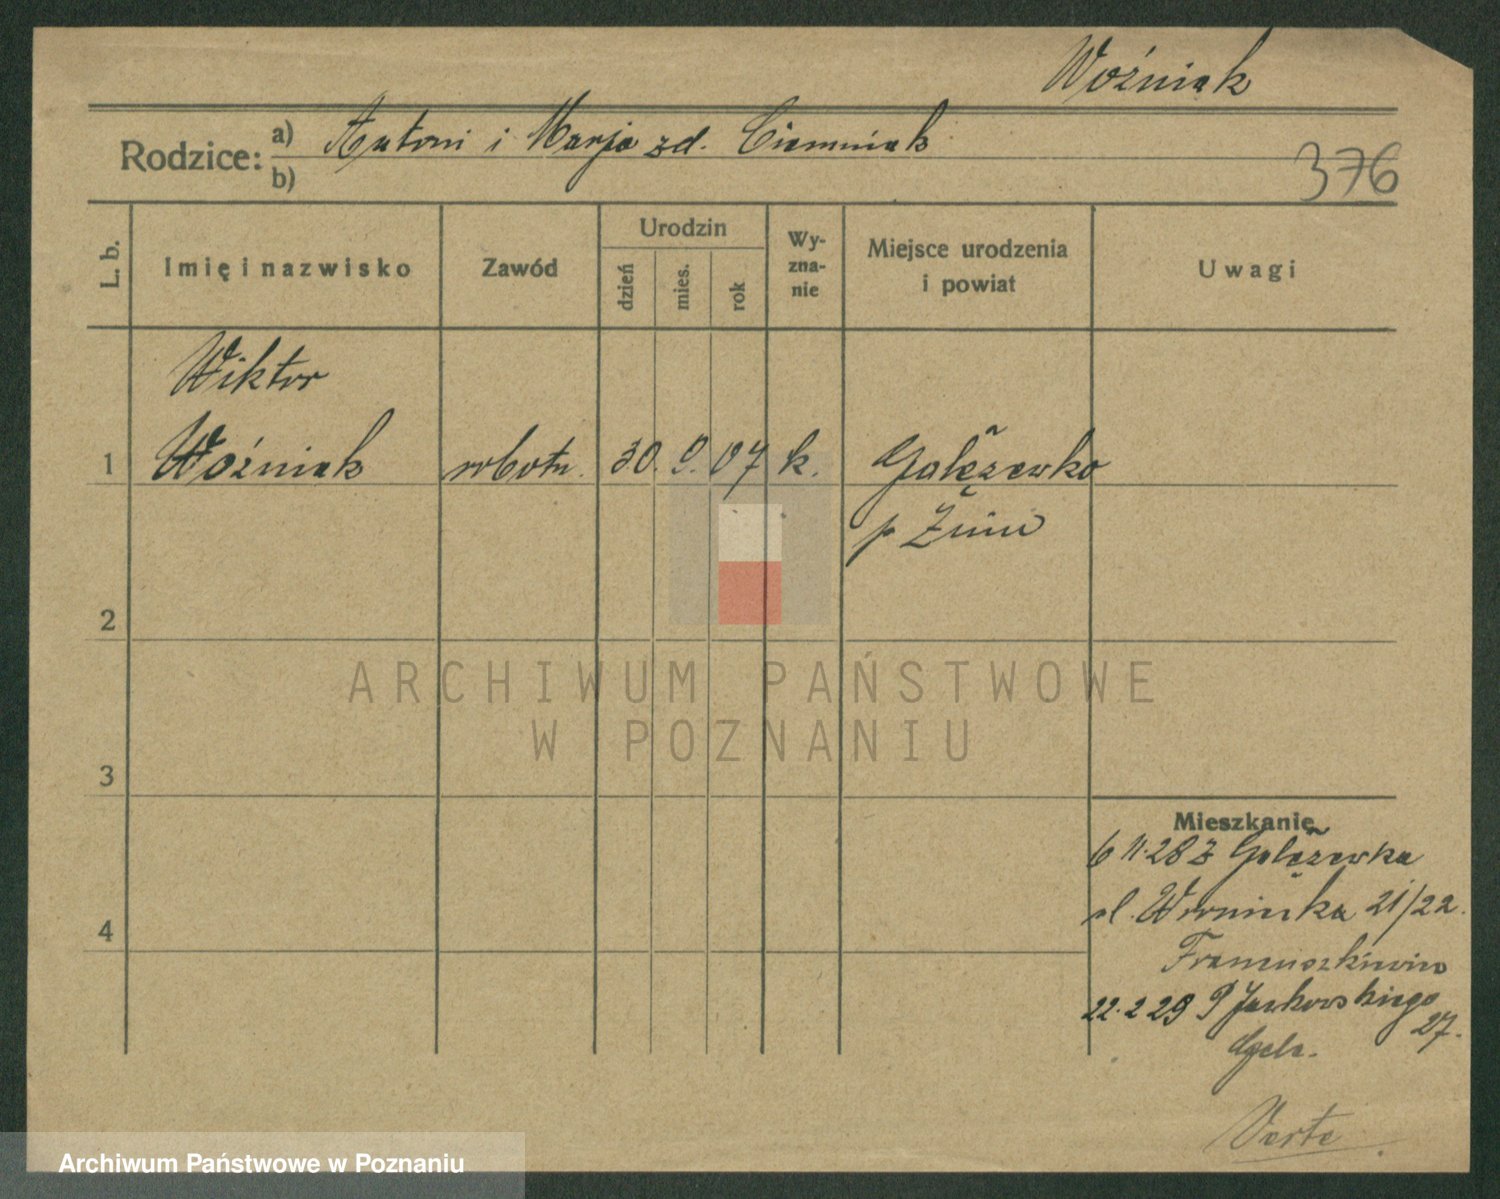 Woźniak
Rodzice: a) Antoni i Marja zd. Ciemniak
b)
376
L. b.
Imię i nazwisko
Zawód
Urodzin
dzień
mies.
rok
Wy-
zna-
nie
Miejsce urodzenia
i powiat
Uwagi
Wiktor
1 Woźniak robotn. 30. 9. 07 k. Gałęzewko
p Żnin
2
3
4
ARCHIWUM PAŃSTWOWE
W POZNANIU
Mieszkanie
6 11.28 z Gałęzewka
ul. 21/22.
22.2 29 P Jackowskiego
27.
Verte
Archiwum Państwowe w Poznaniu